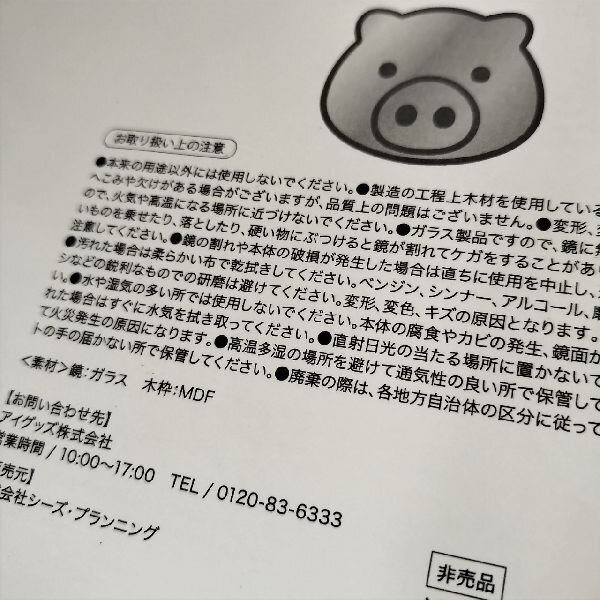 お取り扱い上の注意
●本来の用途以外には使用しないでください。●製造の工程上木材を使用している
へこみや欠けがある場合がございますが、品質上の問題はございません。●変形、変
ので、火気や高温になる場所に近づけないでください。●ガラス製品ですので、鏡に無
いものを乗せたり、落としたり、硬い物にぶつけると鏡が割れてケガをすることがあり
注意してください。●鏡の割れや本体の破損が発生した場合は直ちに使用を中止し、
●汚れた場合は柔らかい布で乾拭きしてください。ベンジン、シンナー、アルコール、磨
シなどの鋭利なものでの研磨は避けてください。変形、変色、キズの原因となります。
い。●水や湿気の多い所では使用しないでください。本体の腐食やカビの発生、鏡面が
れた場合はすぐに水気を拭き取ってください。●直射日光の当たる場所に置かないで
て火災発生の原因になります。●高温多湿の場所を避けて通気性の良い所で保管して
トの手の届かない所で保管してください。●廃棄の際は、各地方自治体の区分に従って
<素材>鏡:ガラス 木枠:MDF
【お問い合わせ先】
アイグッズ株式会社
営業時間 / 10:00〜17:00 TEL / 0120-83-6333
売元】
会社シーズ・プランニング
非売品